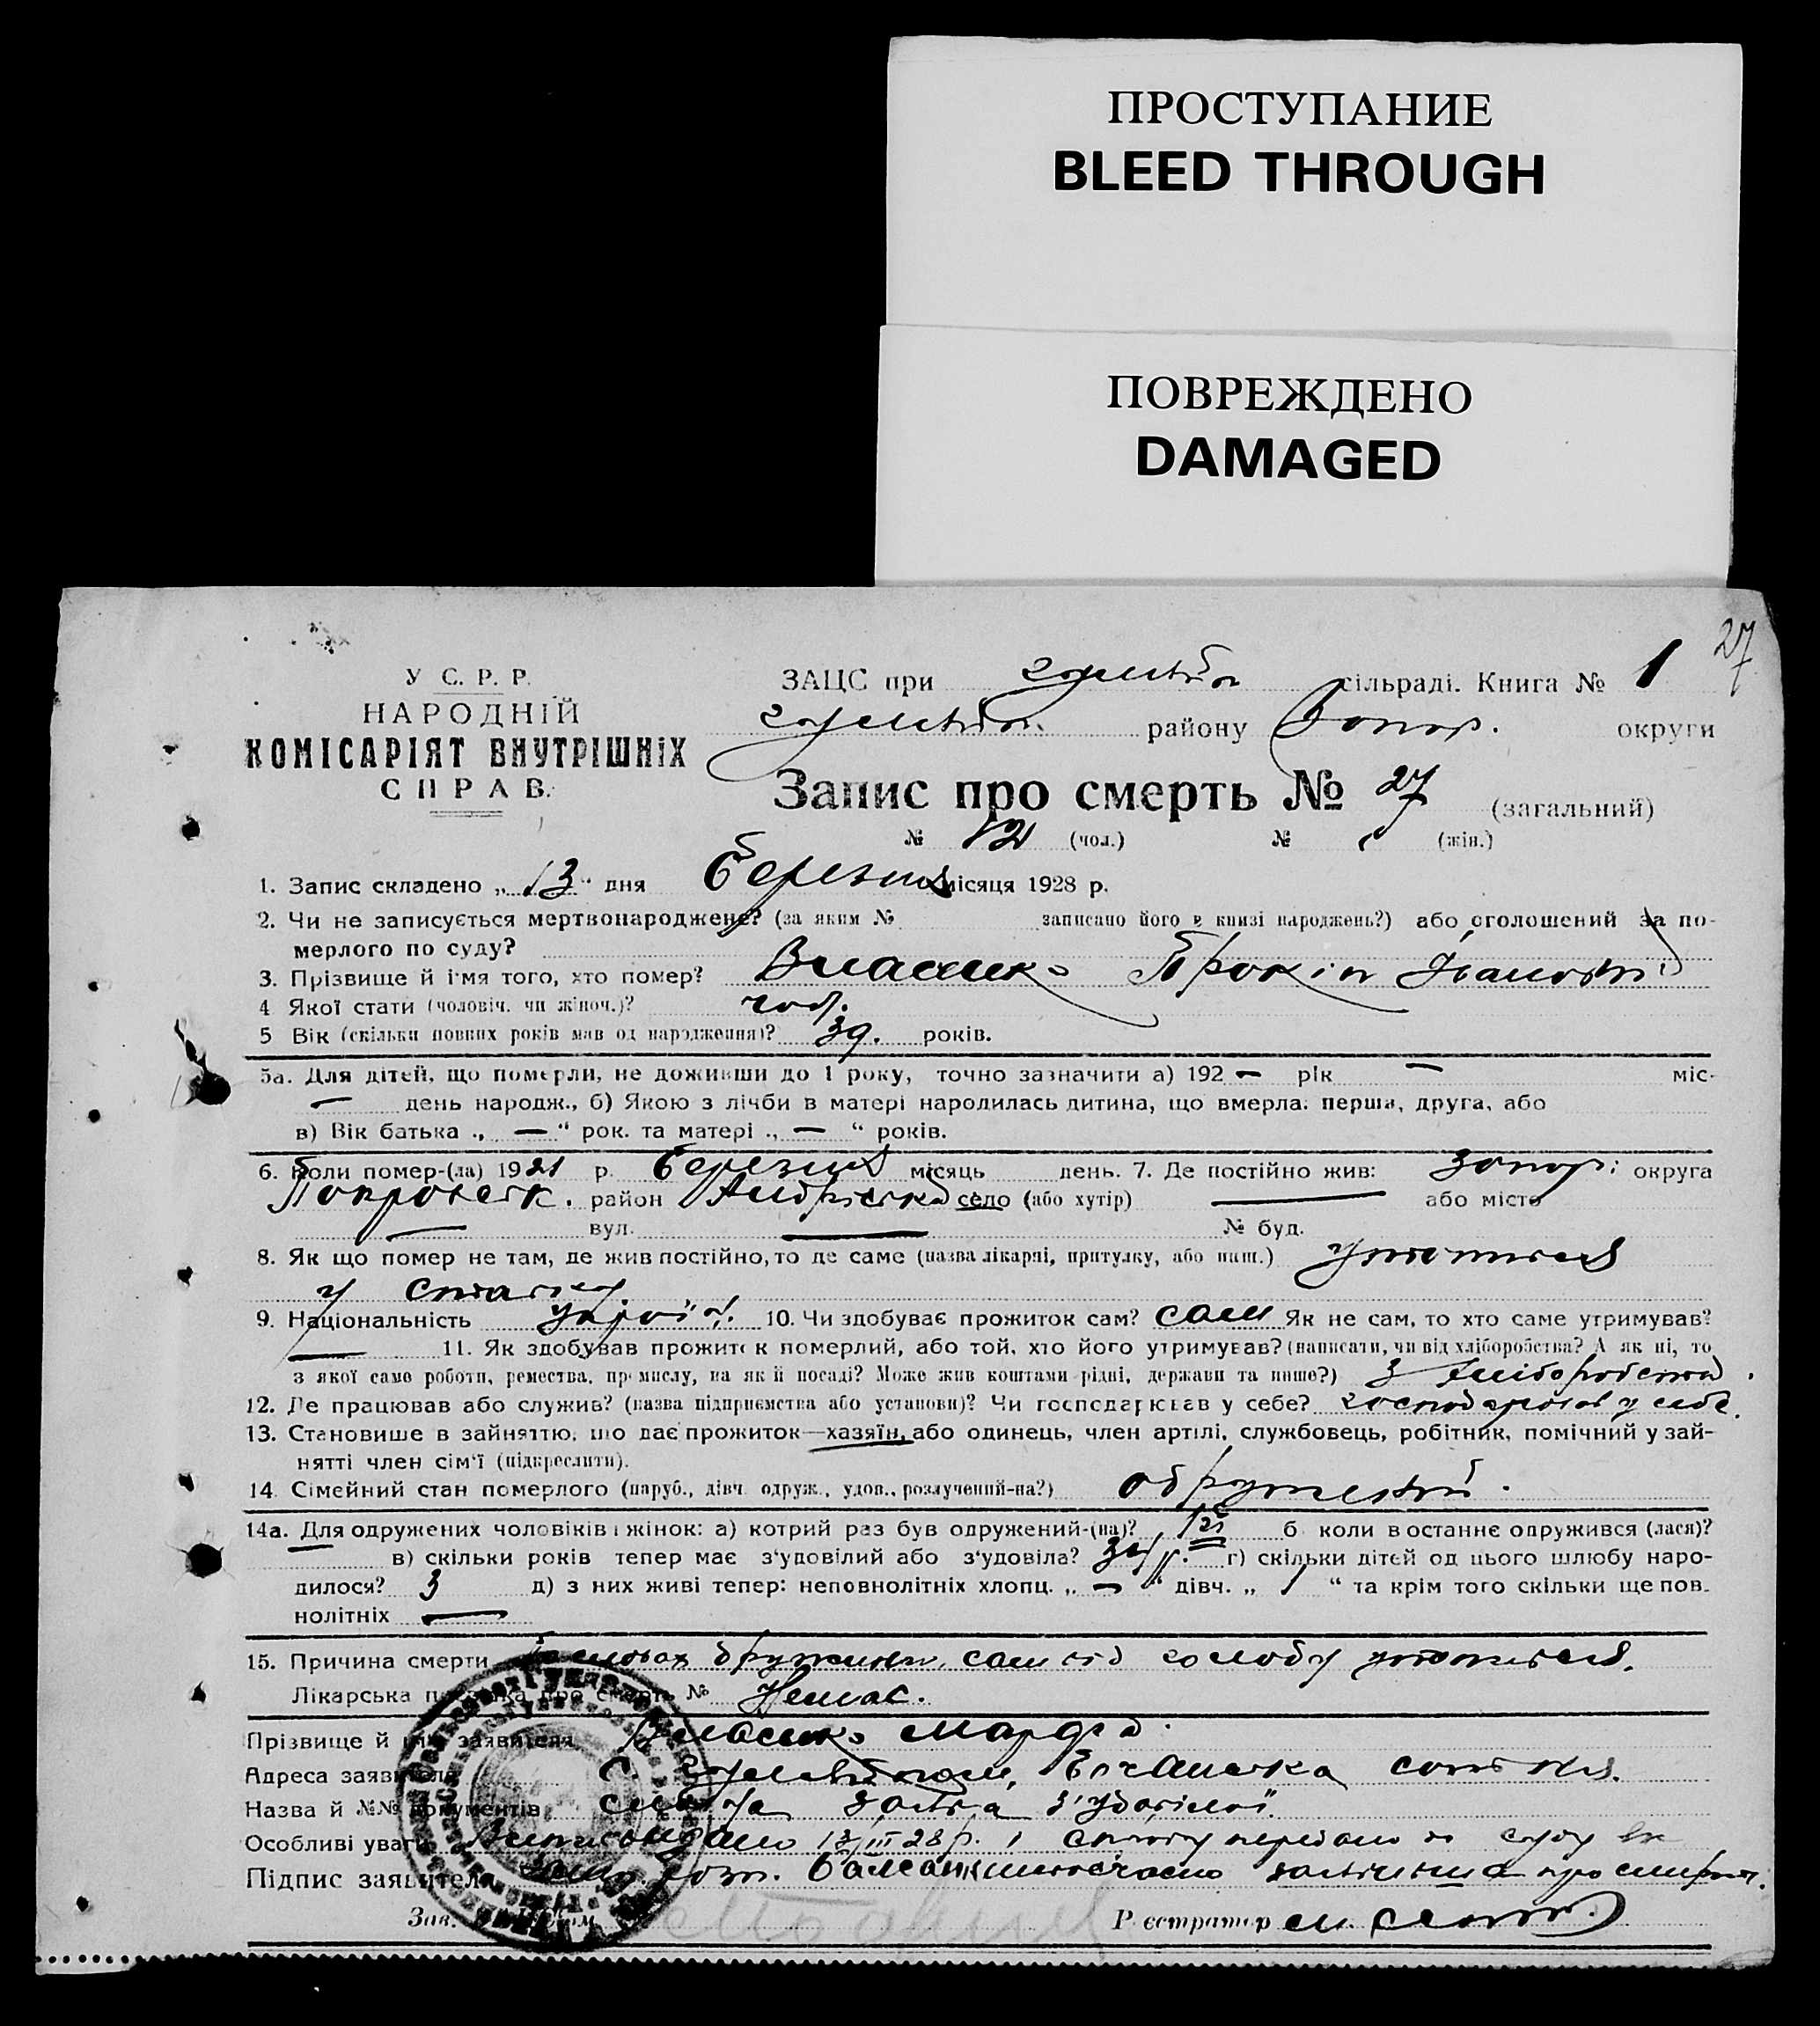 ПРОСТУПАНИЕ
BLEED THROUGH
ПОВРЕЖДЕНО
DAMAGED
27
У С. Р. Р.
НАРОДНІЙ
КОМІСАРІЯТ ВНУТРІШНІХ
СПРАВ.
ЗАЦС при сільраді. Книга № 1
району Запор. округи
Запис про смерть № 27 (загальний)
№ 12 (чол.) № (жін.)
1. Запис складено „ 13 " дня березня місяця 1928 р.
2. Чи не записується мертвонароджене? (за яким № записано його в книзі народжень?) або оголошений за по-
мерлого по суду?
3. Прізвище й ім'я того, хто помер? Власенко Прокіп Іванович
4 Якої стати (чоловіч. чи жіноч.)? чол.
5 Вік (скільки повних років мав од народження)? 39. років.
5а. Для дітей, що померли, не доживши до 1 року, точно зазначити а) 192 — рік — міс.
— день народж., б) Якою з лічби в матері народилась дитина, що вмерла: перша, друга, або
в) Вік батька „ — " рок. та матері „ — " років.
6. Коли помер-(ла) 1921 р. березня місяць день. 7. Де постійно жив: Запор. округа
Покровськ. район Андрієвка село (або хутір) — або місто
— вул. — № буд.
8. Як що помер не там, де жив постійно, то де саме (назва лікарні, притулку, або инш.) утопився
у ставку.
9. Національність україн. 10. Чи здобуває прожиток сам? сам Як не сам, то хто саме утримував?
— 11. Як здобував прожиток померлий, або той, хто його утримував? (написати, чи від хліборобства? А як ні, то
з якої саме роботи, ремества, промислу, на якій посаді? Може жив коштами рідні, держави та инше?) З хліборобства.
12. Де працював або служив? (назва підприємства або установи)? Чи господарював у себе? господарював у себе.
13. Становище в зайняттю, що дає прожиток—хазяїн, або одинець, член артілі, службовець, робітник, помічний у зай-
нятті член сім'ї (підкреслити).
14. Сімейний стан померлого (паруб., дівч. одруж., удов., розлучений-на?) одружений.
14а. Для одружених чоловіків і жінок: а) котрий раз був одружений-(на)? 1й б) коли востаннє одружився (лася)?
в) скільки років тепер має з'удовілий або з'удовіла? г) скільки дітей од цього шлюбу наро-
дилося? 3 д) з них живі тепер: неповнолітніх хлопц. „ — " дівч. „ 1 " та крім того скільки ще пов-
нолітніх —
15. Причина смерти По словах дружини, сам від голоду утопився.
Лікарська посвідка про смерть № Немає.
Прізвище й ім'я заявителя Власенко Марфа
Адреса заявителя С.
Назва й №№ документів заява з'удовілої.
Особливі уваги 13/III 28 р. і передано до суду
Підпис заявителя про смерть.
Зав. Реєстратор